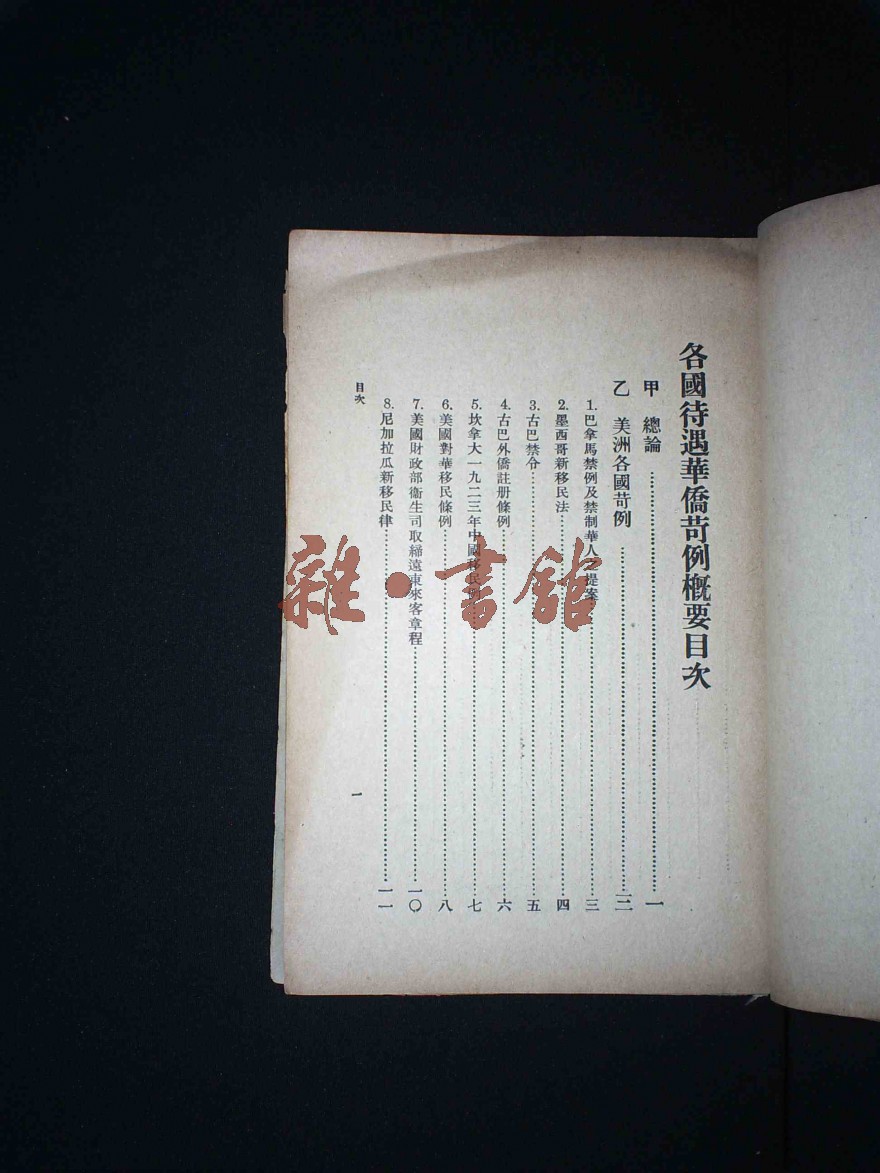 各國待遇華僑苛例概要目次
甲 總論……一
乙 美洲各國苛例……三
1. 巴拿馬禁例及禁制華人之提案……三
2. 墨西哥新移民法……四
3. 古巴禁令……五
4. 古巴外僑註册條例……六
5. 坎拿大一九二三年中國移民例……七
6. 美國對華移民條例……八
7. 美國財政部衞生司取締遠東來客章程……一〇
8. 尼加拉瓜新移民律……一一
目次
一
雜·書館